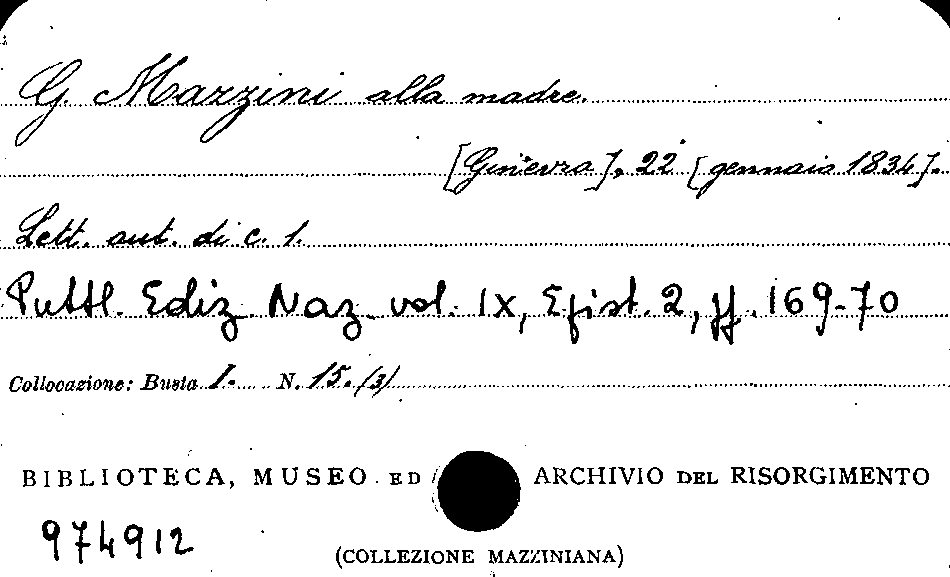 G. Mazzini alla madre.
[Ginevra], 22 [gennaio 1834].
Lett. aut. di c. 1.
Pubbl. Ediz. Naz. vol. IX, Epist. 2, pp. 169-70
Collocazione: Busta I. N. 15. (3)
BIBLIOTECA, MUSEO ED ARCHIVIO DEL RISORGIMENTO
974912
(COLLEZIONE MAZZINIANA)